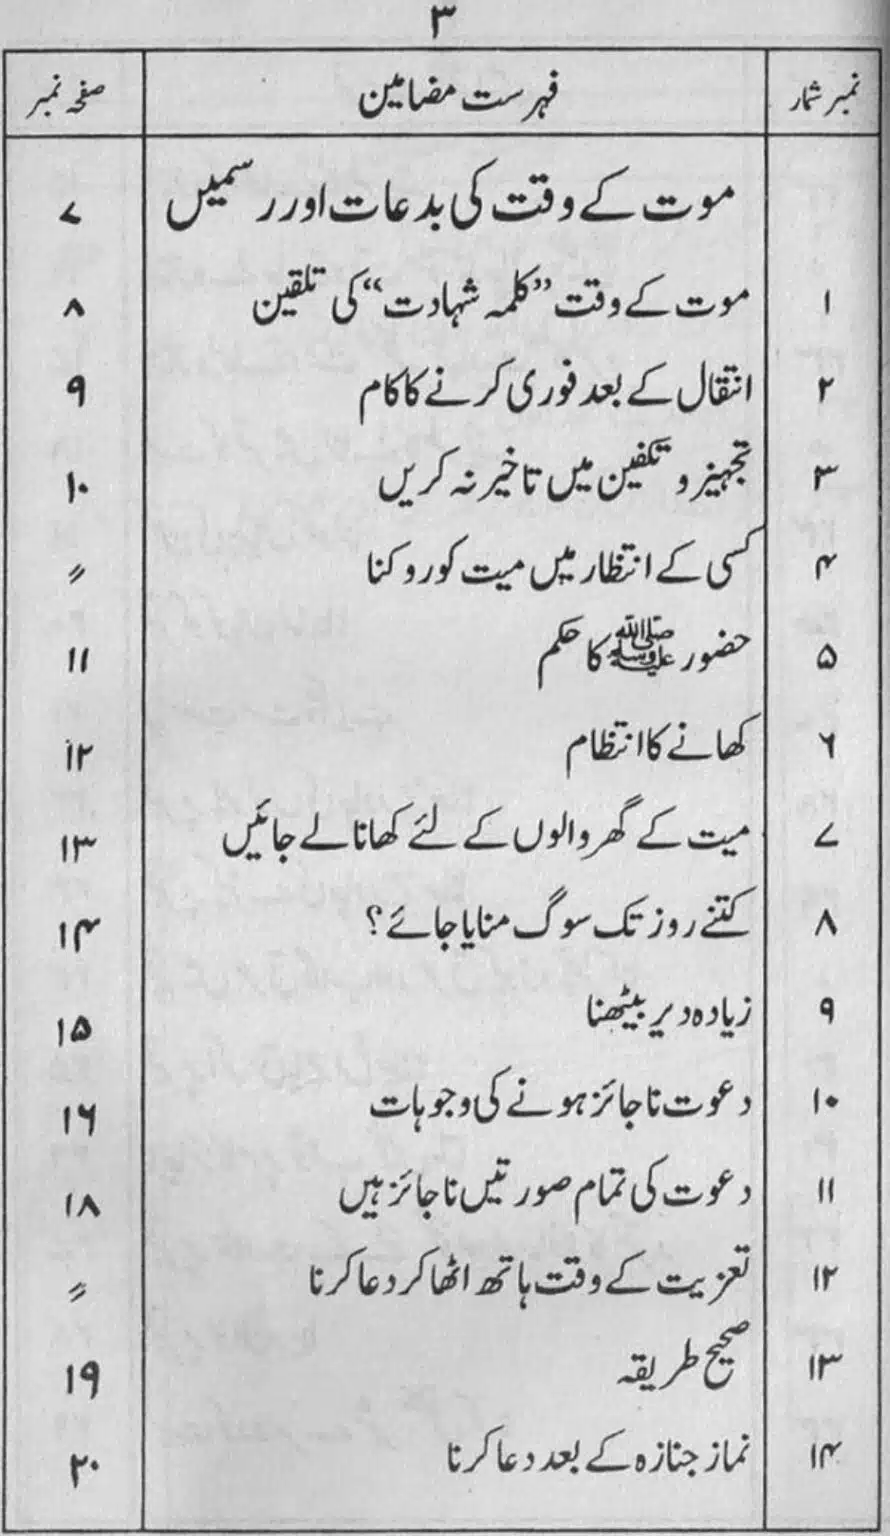 ۳
نمبر شمار فہرست مضامین صفحہ نمبر
موت کے وقت کی بدعات اور رسمیں ۷
۱ موت کے وقت ”کلمہ شہادت“ کی تلقین ۸
۲ انتقال کے بعد فوری کرنے کا کام ۹
۳ تجہیز و تکفین میں تاخیر نہ کریں ۱۰
۴ کسی کے انتظار میں میت کو روکنا 〃
۵ حضور ﷺ کا حکم ۱۱
۶ کھانے کا انتظام ۱۲
۷ میت کے گھر والوں کے لئے کھانا لے جائیں ۱۳
۸ کتنے روز تک سوگ منایا جائے؟ ۱۴
۹ زیادہ دیر بیٹھنا ۱۵
۱۰ دعوت ناجائز ہونے کی وجوہات ۱۶
۱۱ دعوت کی تمام صورتیں ناجائز ہیں ۱۸
۱۲ تعزیت کے وقت ہاتھ اٹھا کر دعا کرنا 〃
۱۳ صحیح طریقہ ۱۹
۱۴ نماز جنازہ کے بعد دعا کرنا ۲۰